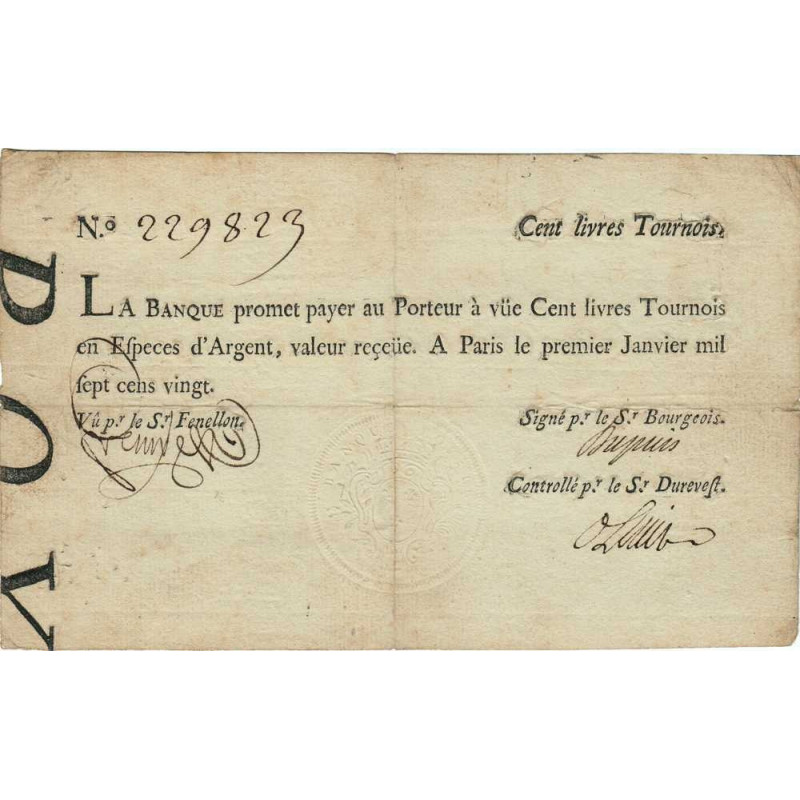 N.º 229823
Cent livres Tournois.
LA BANQUE promet payer au Porteur à vüe Cent livres Tournois
en Eſpeces d'Argent, valeur reçeüe. A Paris le premier Janvier mil
ſept cens vingt.
Vû p.r le S.r Fenellon.
Signé p.r le S.r Bourgeois.
Dupuis
Controllé p.r le S.r Dureveſt.